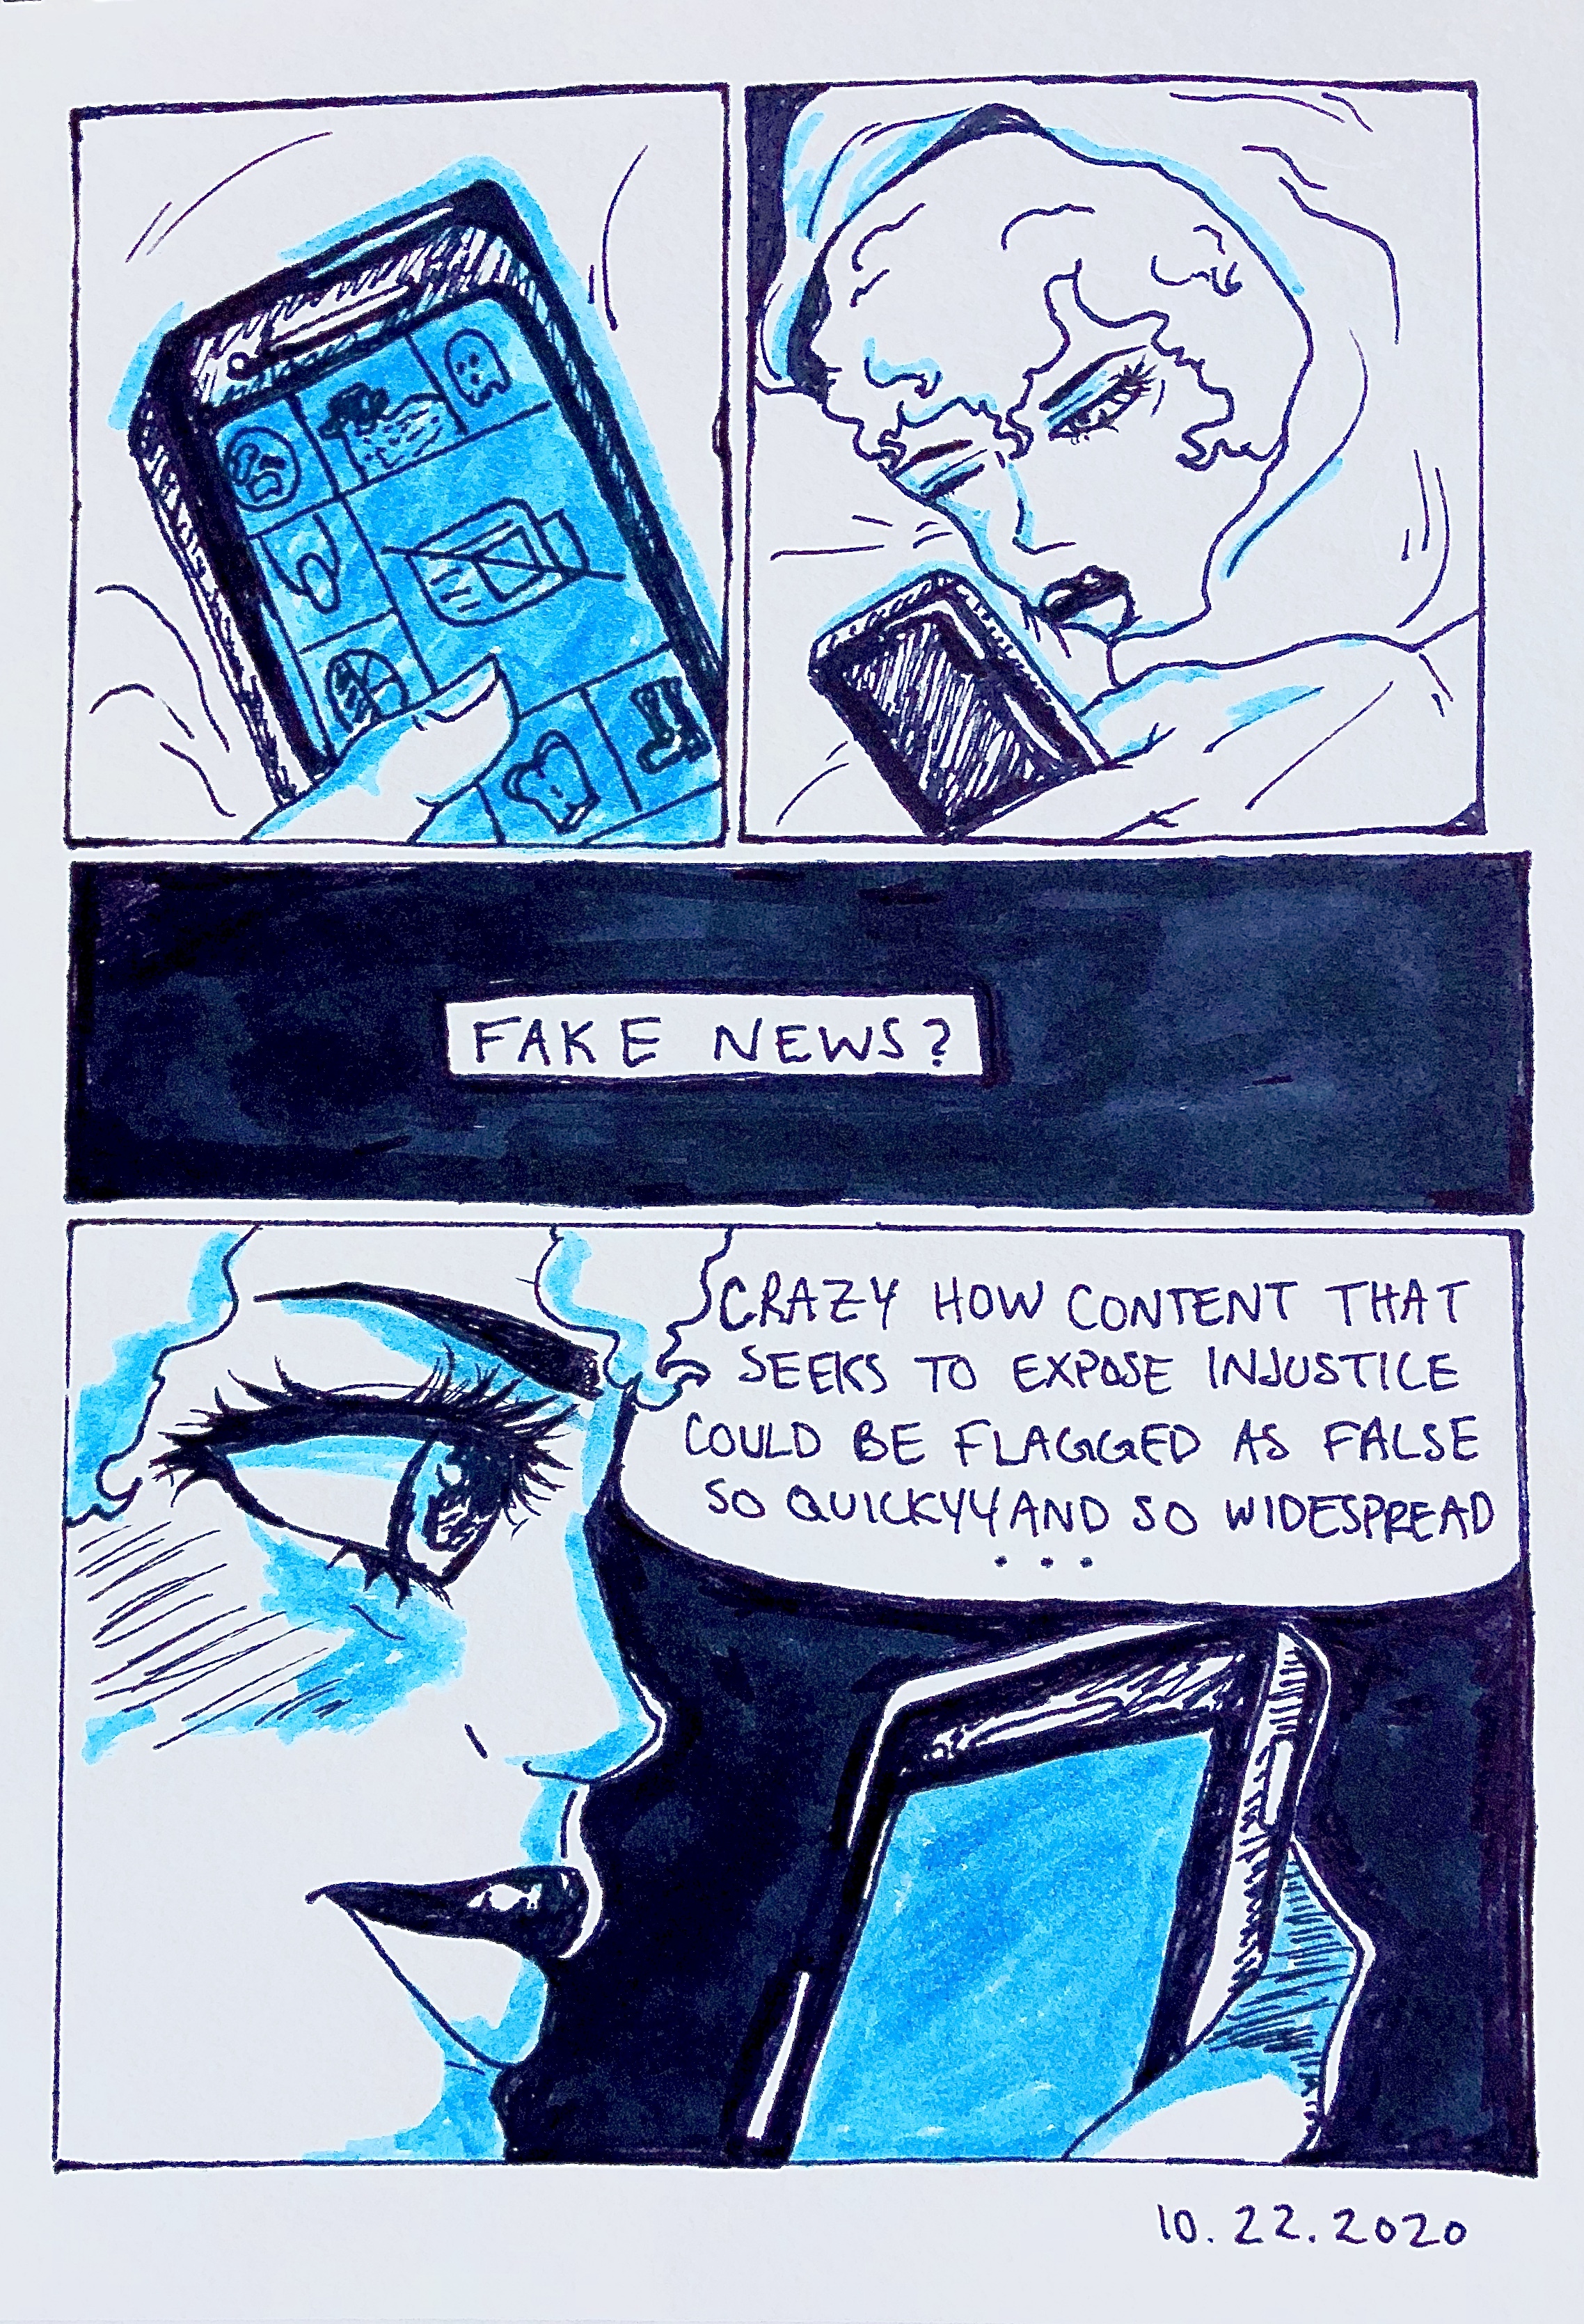 FAKE NEWS?
CRAZY HOW CONTENT THAT
SEEKS TO EXPOSE INJUSTICE
COULD BE FLAGGED AS FALSE
SO QUICKYY AND SO WIDESPREAD
...
10.22.2020